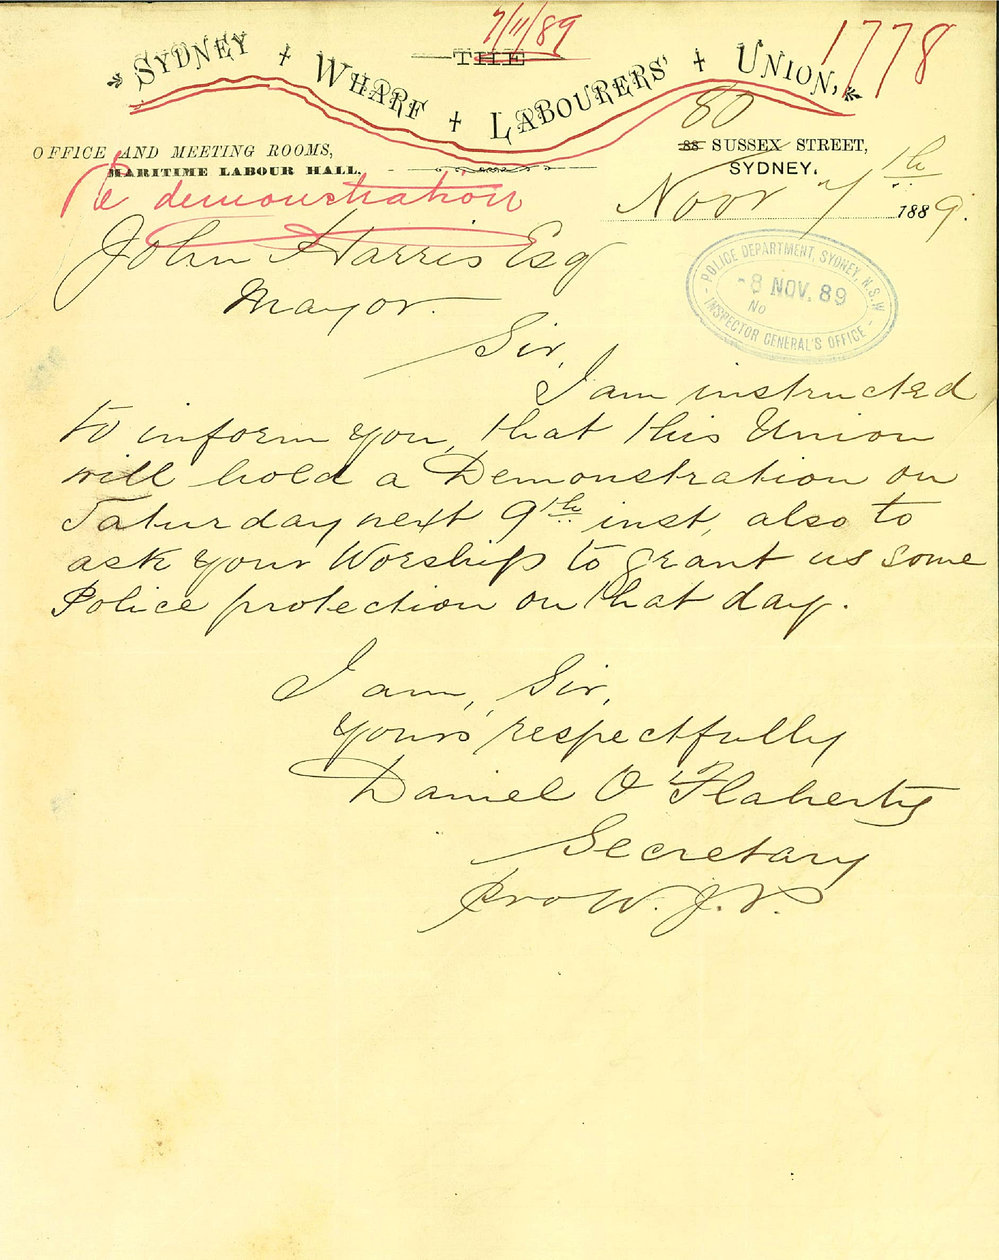 7/11/89
1778
THE
SYDNEY WHARF LABOURERS' UNION,
80
OFFICE AND MEETING ROOMS,
MARITIME LABOUR HALL.
88 SUSSEX STREET,
SYDNEY.
Re demonstration
Novr 7th 1889.
John Harris Esq
Mayor.
POLICE DEPARTMENT, SYDNEY, N.S.W
-8 NOV. 89
No
INSPECTOR GENERAL'S OFFICE
Sir,
I am instructed
to inform you, that this Union
will hold a Demonstration on
Saturday next 9th inst, also to
ask your Worship to grant us some
Police protection on that day.
I am, Sir,
Yours respectfully
Daniel O'Flaherty
Secretary
Pro W. J. V.